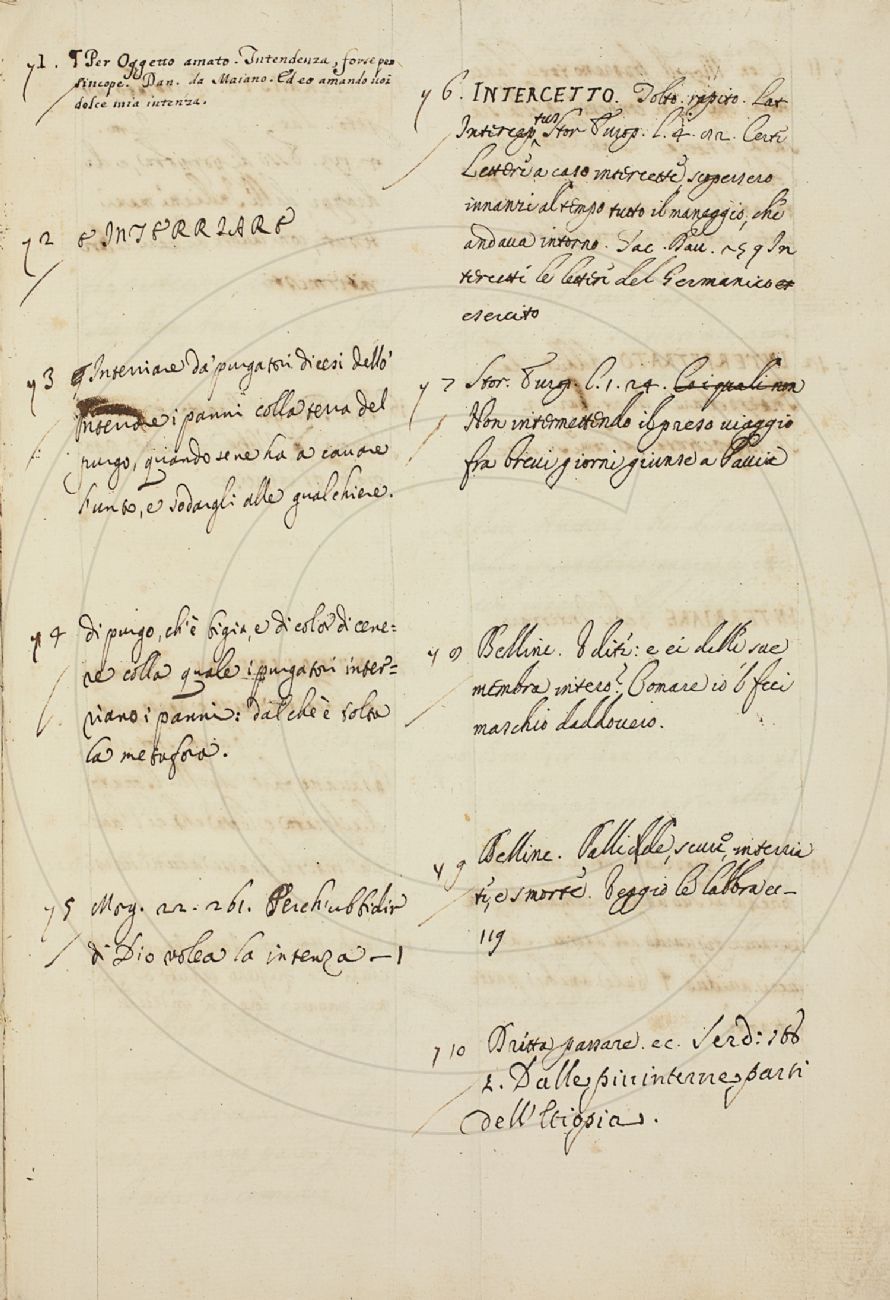 y1. ¶ Per Oggetto amato. Intendenza, forse per
sincope. Dan. da Maiano. Ed eo amando uoi
dolce mia intenza.
y2 INTERRIARE
y3 ¶ Interriare da' purgatori dicesi dello'
i panni colla terra del
purgo, quando se ne ha a cauare
l'unto, e sodargli alle gualchiere.
y4 di purgo, ch'è bigia, e di color di cene=
re colla quale i purgatori inter=
riano i panni: dal che è tolta
la metafora.
y5 Mor. 22. 261. Perch' ubbidir
di Dio volea la intenza — 1
y6. INTERCETTO. Tolto. rapito. Lat
Interceptus Stor Europ. l. 4. 82. Certe
Lettere a caso intercette, scopersero
innanzi al tempo tutto il maneggio, che
andaua intorno. Tac. Dau. 259 In
tercette le lettere del Germanico es
esercito
y7 Stor. Europ. l. 1. 24.
Non intermettendo il preso uiaggio
fra breui giorni giunse a Pauia
y8 Bellinc. : e ei delle sue
membra intero? Comare io 'l feci
maschio daddouero.
y9 Bellinc. Pallide, scure, interria
te, e smorte. Veggio le labbra ec—
119
y10 Dritta passare. ec. Serd: 166
2. Dalle piu interne parti
dell'Etiopia.